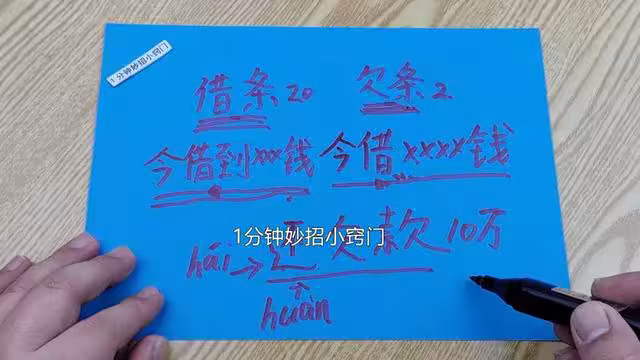 1分钟妙招小窍门
借条20 欠条2
今借到xxx钱 今借xxxx钱
1分钟妙招小窍门
hái→还欠款10万
huán